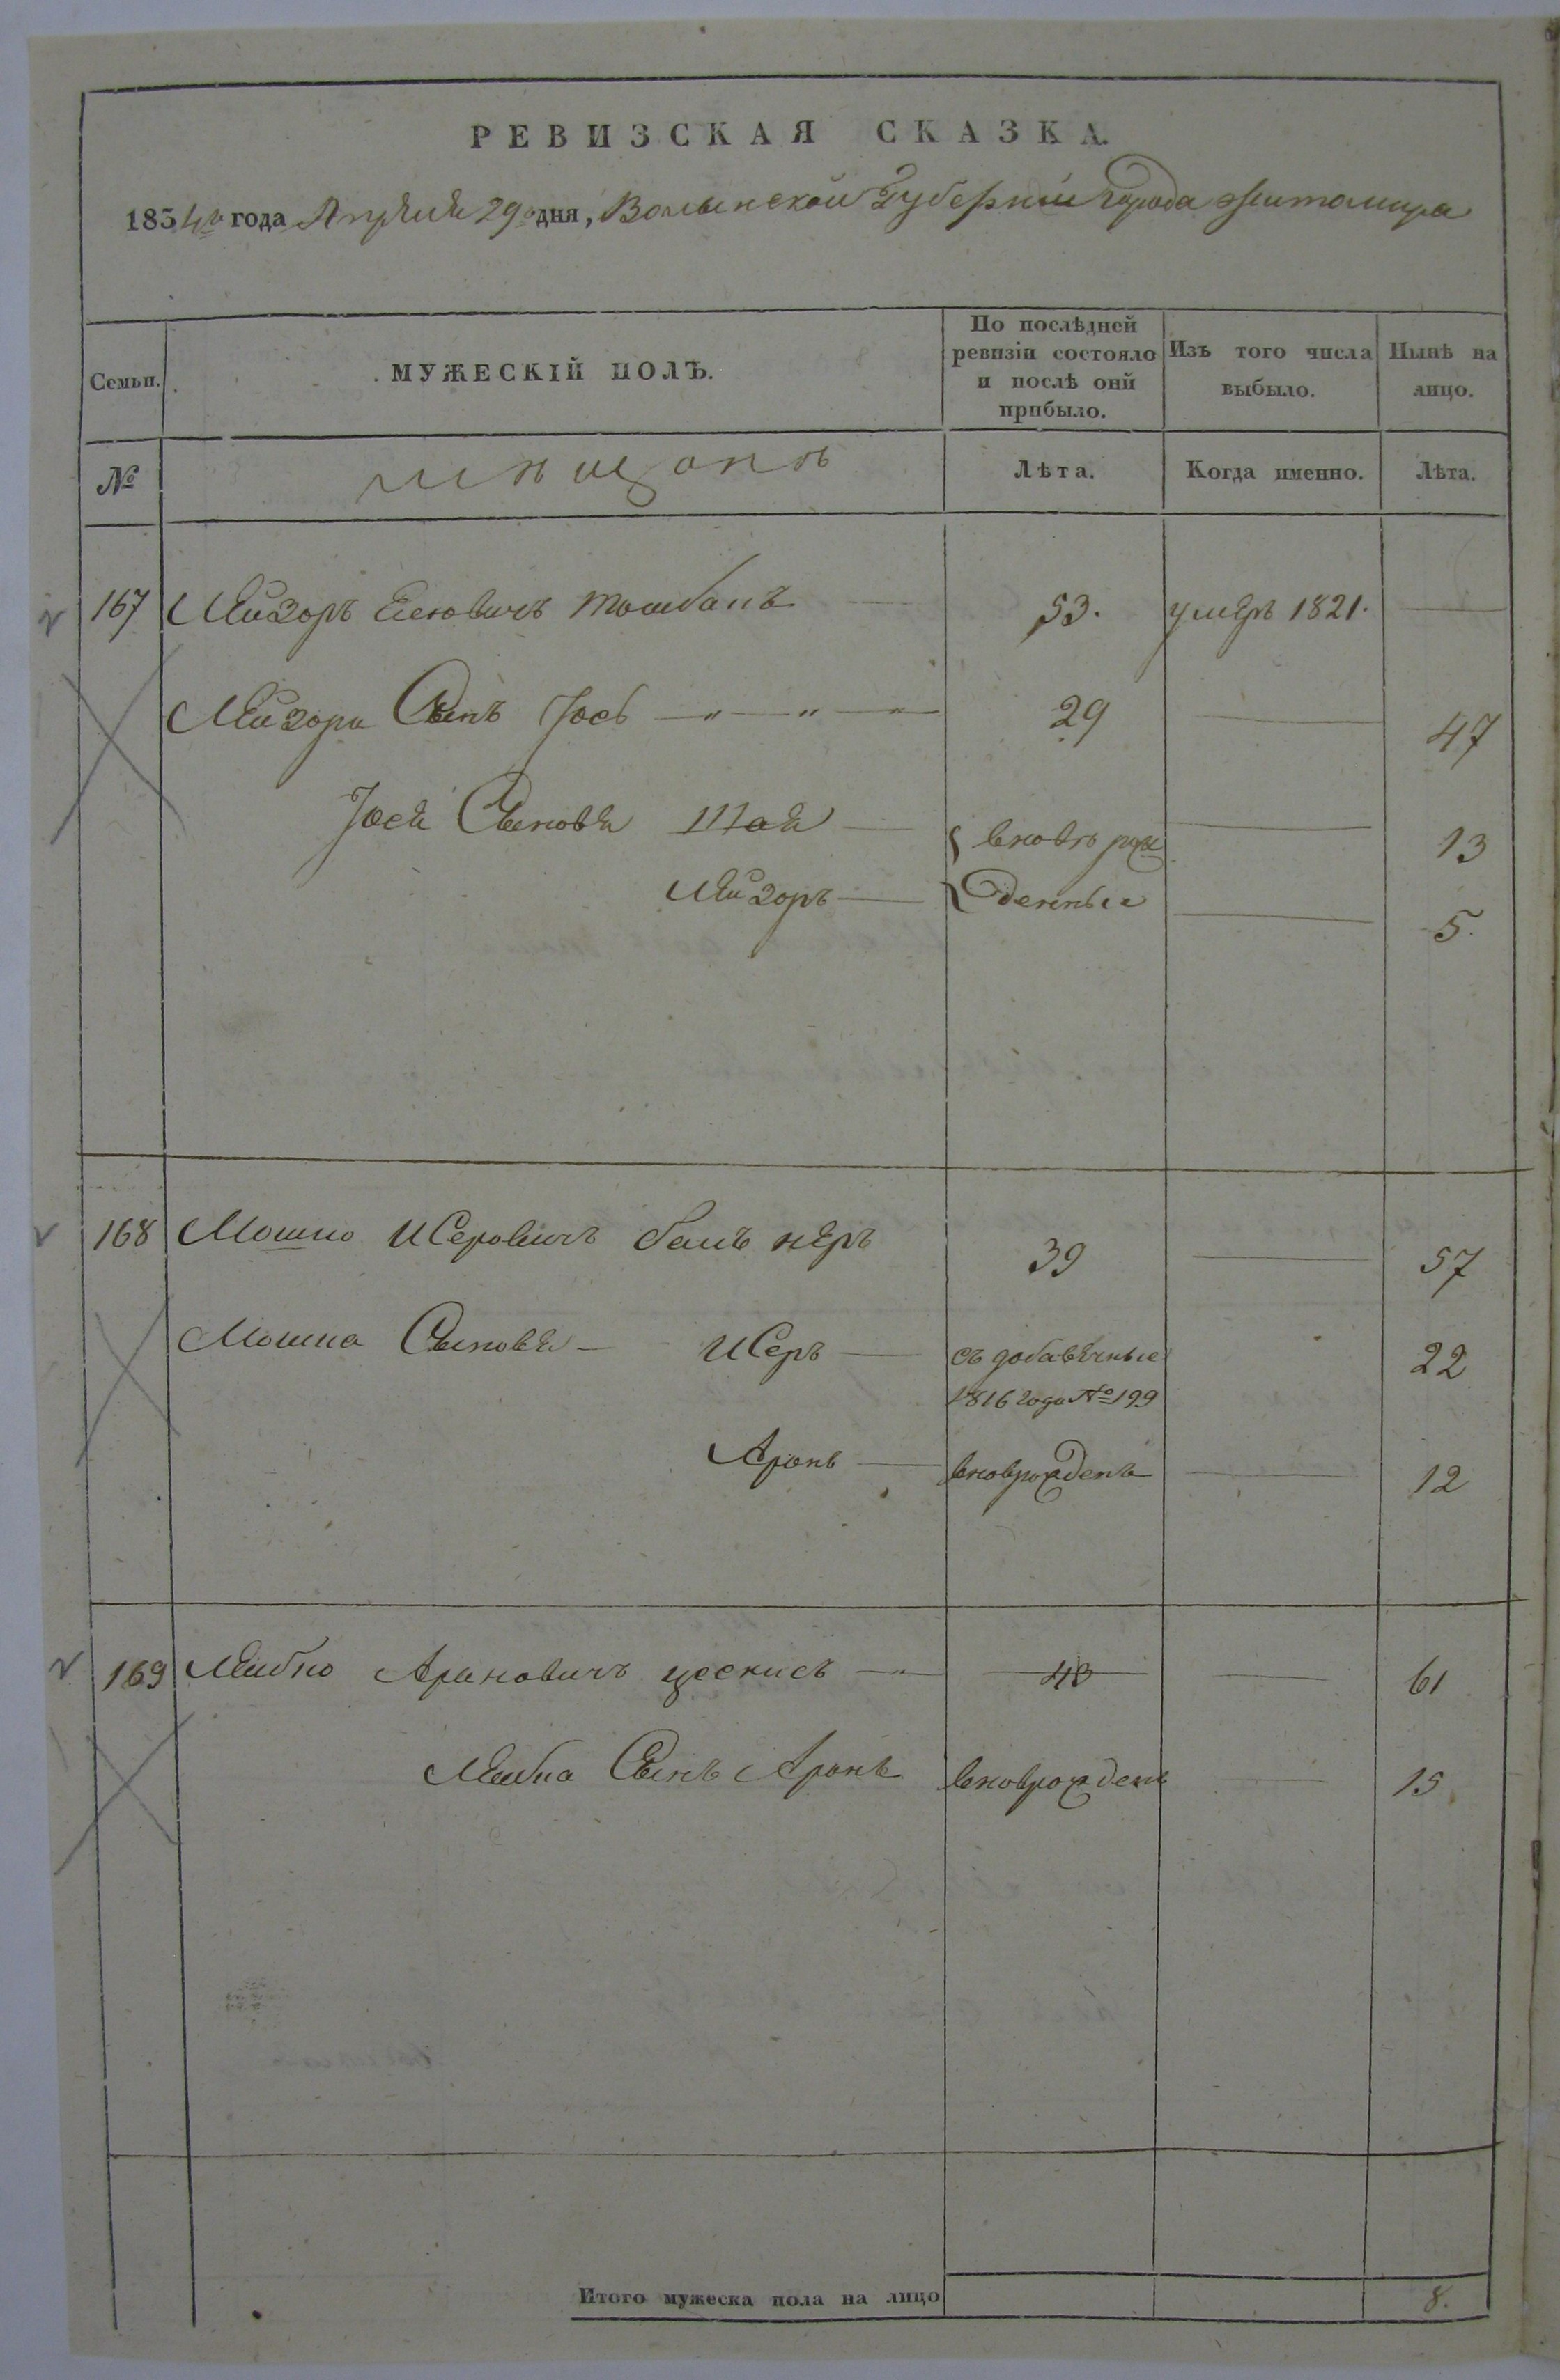 РЕВИЗСКАЯ СКАЗКА.
1834го года Апреля 29го дня, Волынской Губернии города Житомира
Семьи. МУЖЕСКІЙ ПОЛЪ. По послѣдней ревизіи состояло и послѣ оній прибыло. Изъ того числа выбыло. Нынѣ на лицо.
№ мещанъ Лѣта. Когда именно. Лѣта.
167 Лейзоръ 53. умеръ 1821.
Лейзора Сынъ Іось 29 47
Іося Сыновья Шая вновь рож 13
Лейзоръ денные 5.
168 Мошко Исеровичъ 39 57
Мошка Сыновья Исеръ съ добавочные 22
1816 года № 199
Аронъ вноврожденъ 12
169 Лейбко Ароновичъ 43 61
Лейбка Сынъ Аронъ вноврожденъ 15
Итого мужеска пола на лицо 8.